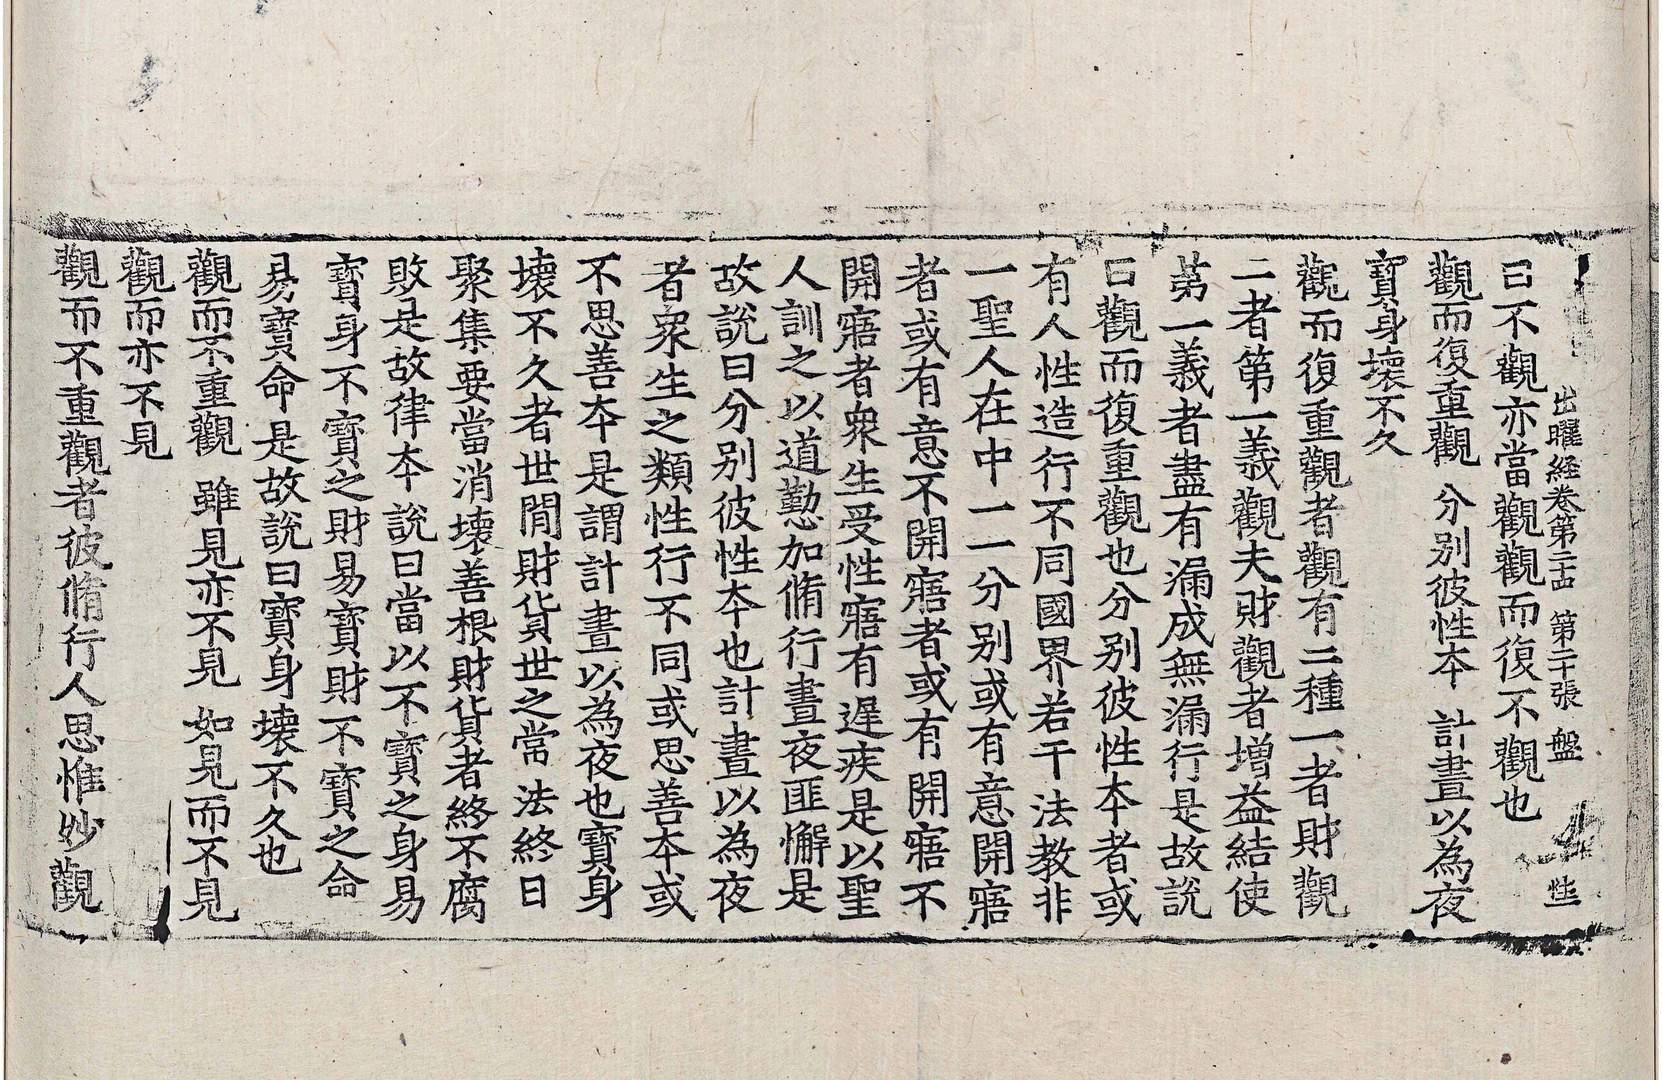 出曜経卷第二十四 第二十張 盤
曰不觀亦當觀觀而復不觀也
觀而復重觀 分別彼性本 計晝以為夜
寶身壊不久
觀而復重觀者觀有二種一者財觀
二者第一義觀夫財觀者増益結使
第一義者盡有漏成無漏行是故說
曰觀而復重觀也分別彼性本者或
有人性造行不同國界若干法教非
一聖人在中一一分別或有意開寤
者或有意不開寤者或有開寤不
開寤者衆生受性寤有遅疾是以聖
人訓之以道懃加脩行晝夜匪懈是
故說曰分別彼性本也計晝以為夜
者衆生之類性行不同或思善本或
不思善本是謂計晝以為夜也寶身
壊不久者世間財貨世之常法終日
聚集要當消壊善根財貨者終不腐
敗是故律本說曰當以不寶之身易
寶身不寶之財易寶財不寶之命
易寶命是故說曰寶身壊不久也
觀而不重觀 雖見亦不見 如見而不見
觀而亦不見
觀而不重觀者彼脩行人思惟妙觀